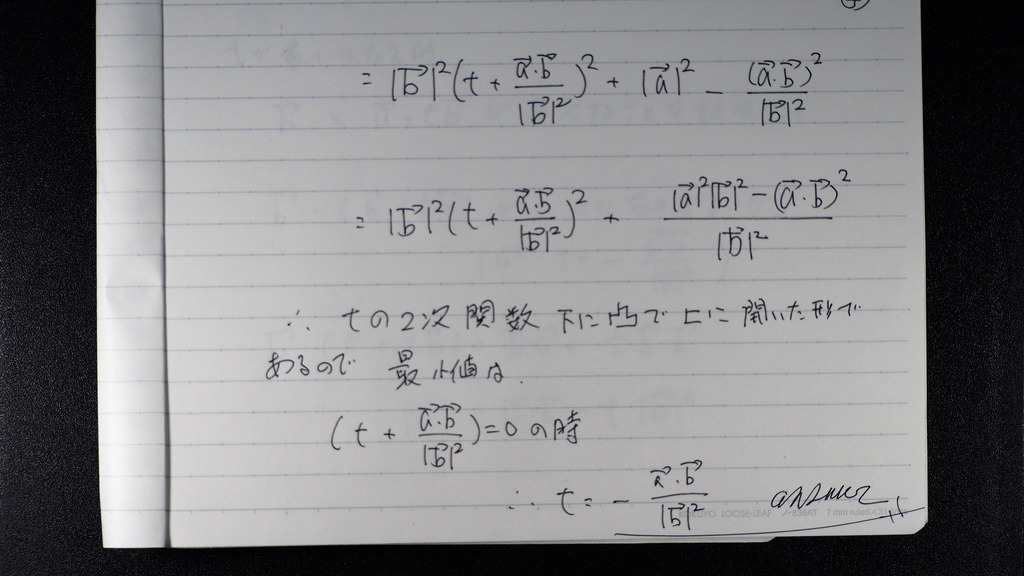 = |b⃗|²(t + a⃗·b⃗/|b⃗|²)² + |a⃗|² - (a⃗·b⃗)²/|b⃗|²
= |b⃗|²(t + a⃗·b⃗/|b⃗|²)² + |a⃗|²|b⃗|² - (a⃗·b⃗)²/|b⃗|²
∴ tの2次関数 下に凸で上に開いた形で
あるので 最小値は.
(t + a⃗·b⃗/|b⃗|²)=0の時
∴ t = - a⃗·b⃗/|b⃗|² answer
LOOSE-LEAF 7 mm ruled